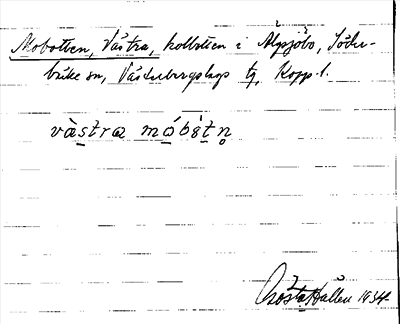 Mobotten, Västra, kolbotten i Älgsjöbo, Söder-
bärke sn, Västerbergslags tg, Kopp. l.
vàstra móbòtn̥
Gösta Hållen 1934